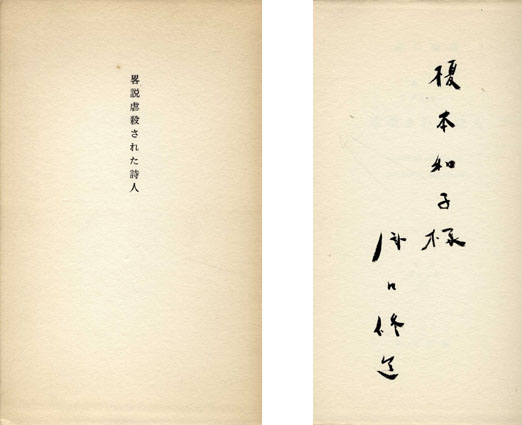 畧説虐殺された詩人
榎本和子様
瀧口修造